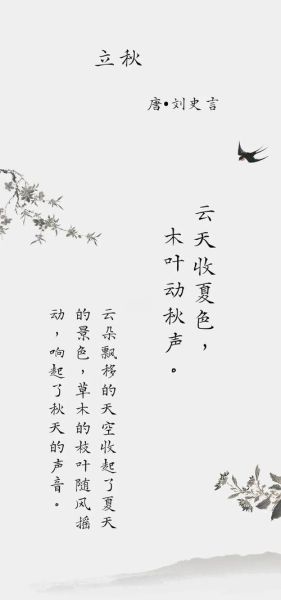 立秋
唐•刘史言
云天收夏色，
木叶动秋声。
云朵飘移的天空收起了夏天
的景色，草木的枝叶随风摇
动，响起了秋天的声音。